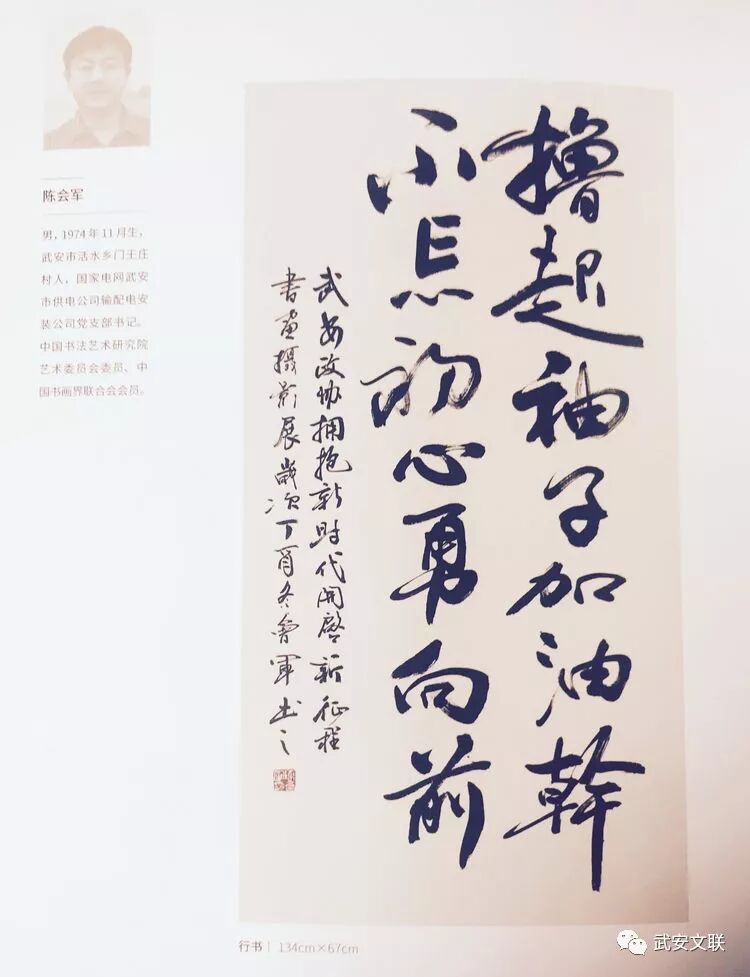 陈会军
男，1974年11月生，
武安市活水乡门王庄
村人，国家电网武安
市供电公司输配电安
装公司党支部书记。
中国书法艺术研究院
艺术委员会委员、中
国书画界联合会会员。
撸起袖子加油幹
不忘初心勇向前
武安政协拥抱新时代开启新征程
书画摄影展岁次丁酉冬會军书之
行书｜134cm×67cm
武安文联